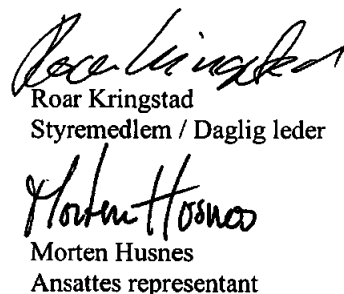 Roar Kringstad
Roar Kringstad
Styremedlem / Daglig leder
Morten Hosnes
Morten Husnes
Ansattes representant